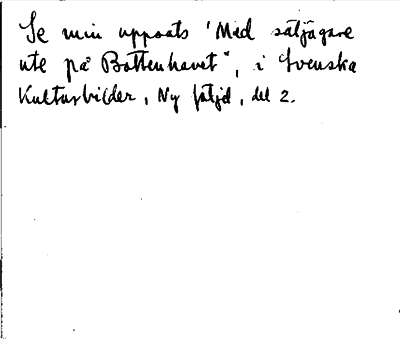 Se min uppsats "Med säljägare
ute på Bottenhavet", i Svenska
Kulturbilder, Ny följd, del 2.